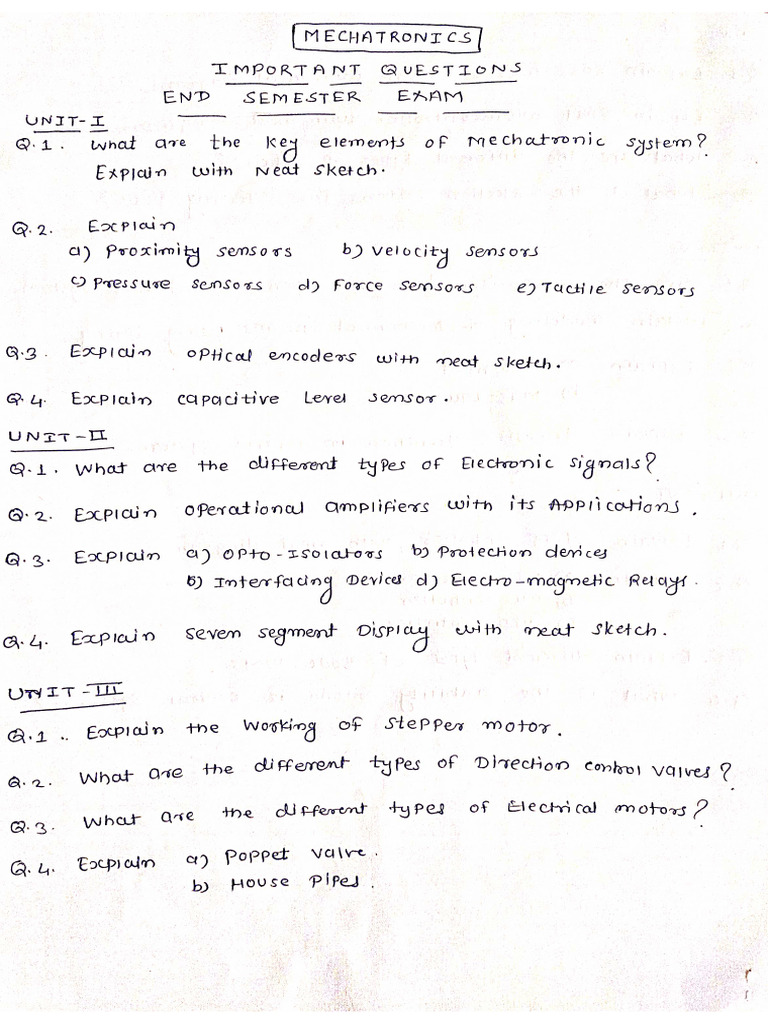 MECHATRONICS
IMPORTANT QUESTIONS
END SEMESTER EXAM
UNIT-I
Q.1. What are the key elements of Mechatronic system?
Explain with Neat sketch.
Q.2. Explain
a) Proximity sensors b) Velocity sensors
c) Pressure sensors d) Force sensors e) Tactile sensors
Q.3. Explain optical encoders with neat sketch.
Q.4. Explain capacitive Level sensor.
UNIT-II
Q.1. What are the different types of Electronic signals?
Q.2. Explain operational amplifiers with its Applications.
Q.3. Explain a) Opto-Isolators b) Protection devices
b) Interfacing Devices d) Electro-magnetic Relays.
Q.4. Explain seven segment Display with neat sketch.
UNIT-III
Q.1.. Explain the working of stepper motor.
Q.2. What are the different types of Direction control valves?
Q.3. What are the different types of Electrical motors?
Q.4. Explain a) Poppet valve.
b) House Pipes.